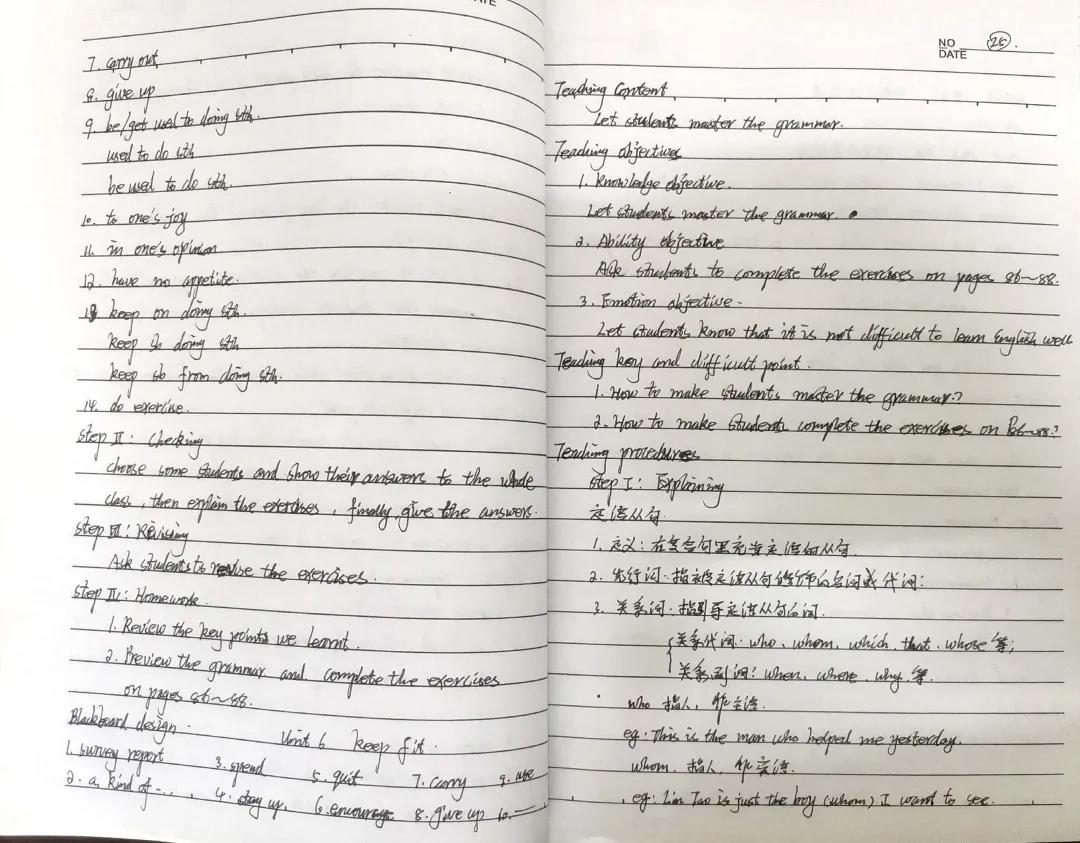 7. carry out
8. give up
9. be/get used to doing sth.
used to do sth
be used to do sth.
10. to one's joy
11. in one's opinion
12. have no appetite.
13 keep on doing sth.
keep sb doing sth
keep sb from doing sth.
14. do exercise.
Step II: Checking
choose some students and show their answers to the whole
class, then explain the exercises, finally, give the answers.
Step III: Revising
Ask students to revise the exercises.
Step IV: Homework.
1. Review the key points we learnt.
2. Preview the grammar and complete the exercises
on pages 86~88.
Blackboard design.
Unit 6 keep fit.
1. survey report 3. spend 5. quit 7. carry 9. use
2. a kind of ... 4. stay up 6. encourage 8. give up 10.
NO 25.
DATE
Teaching Content
Let students master the grammar.
Teaching objectives
1. Knowledge objective.
Let students master the grammar.
2. Ability objective
Ask students to complete the exercises on pages 86~88.
3. Emotion objective.
Let students know that it is not difficult to learn English well
Teaching key and difficult point.
1. How to make students master the grammar?
2. How to make students complete the exercises on P86~88?
Teaching procedures
Step I: Explaining
定语从句
1. 定义:在复合句里充当定语的从句.
2. 先行词:指被定语从句修饰的名词或代词:
3. 关系词:指引导定语从句的词.
关系代词:who, whom, which, that, whose 等;
关系副词:when, where, why 等.
who 指人, 作主语.
eg: This is the man who helped me yesterday.
whom. 指人, 作宾语.
eg: Lin Tao is just the boy (whom) I want to see.